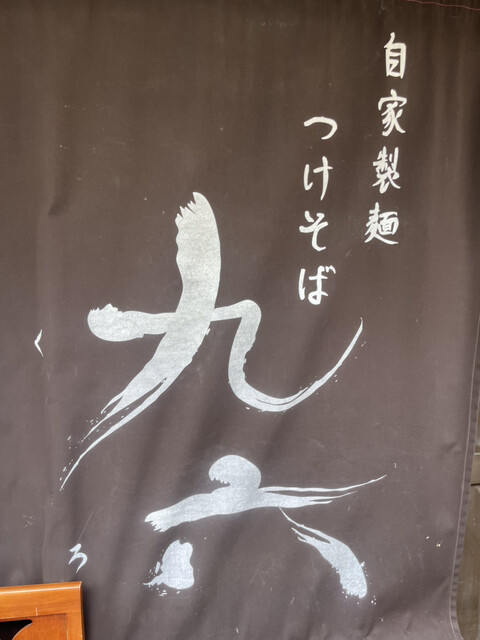 自家製麺
つけそば
九六
くろ